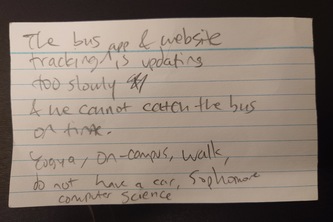 The bus app & website
tracking is updating
too slowly
& we cannot catch the bus
on time.
on-campus, walk,
do not have a car, Sophomore
computer science